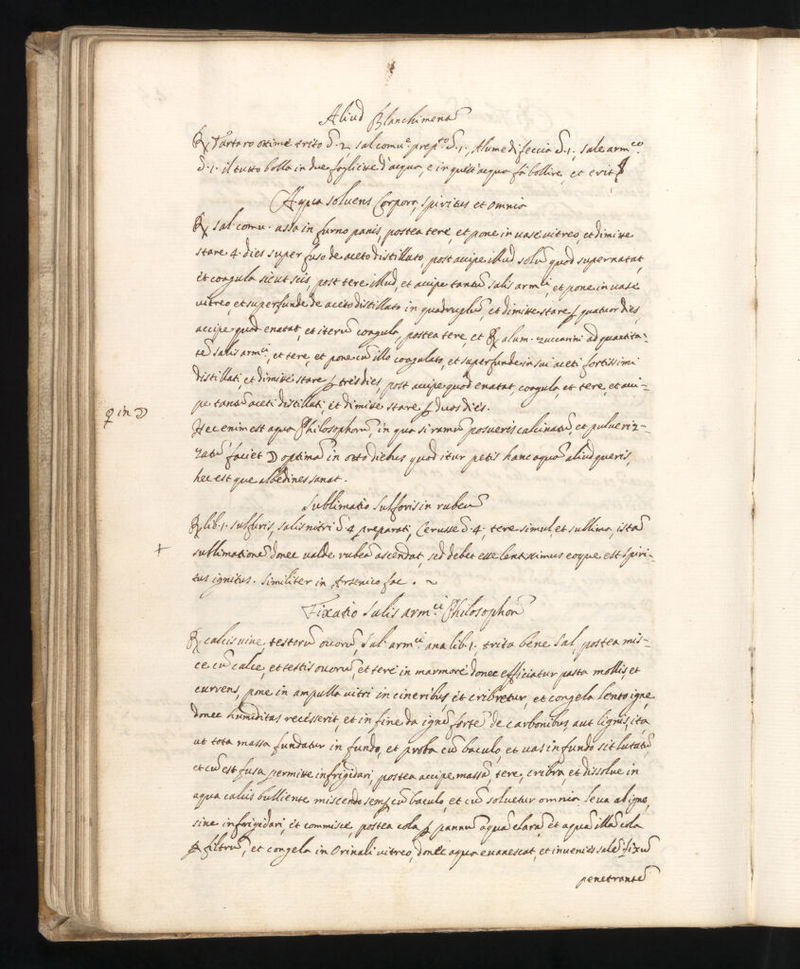 Aliud Blanchimentũ
℞ Tartaro ottime trito ℥. 2. sal comuᵉ prepᵗᵒ ℥. 1., Alume di feccia ℥. 1., sale armᶜᵒ
℥. 1. il tutto bolla in due fogliette d'acqua, e in quest'acqua fà bollire, et erit
Aqua solvens Corpora, Spiritus et omnia
℞ sal comu. assa in furno panis, postea tere, et pone in vase vitreo, et dimitte
stare 4. dies super fuso de aceto distillato, post accipe illud solũ quod supernatat,
et coagula sicut scis, post tere illud, et accipe tantũ salis armᶜⁱ, et pone in vase
vitreo, et superfunde de aceto distillato in quadruplũ, et dimitte stare ꝑ quatuor dies,
accipe quod enatat, et iterũ coagula, postea tere, et ℞ alum. zuccarini ad quantita-
tẽ salis armᶜⁱ, et tere, et pone cũ illo coagulato, et superfunde in sui aceti fortissimi
distillati, et dimitte stare ꝑ tres dies, post accipe quod enatat, coagula, et tere, et acci-
pe tantũ aceti distillati, et dimitte stare ꝑ duos dies.
♀ in ☽
Hec enim est aqua Philosophorũ, in qua si ramũ posueris calcinatũ, et pulveriz-
zatũ faciet ☽ optimã in octo diebus quod itur petis hanc aquã aliud queris,
hec est que albedines sanat.
Sublimatio Sulforis in rubeũ
℞ lib. 1. sulfuris, salis nitri ℥ 4 preparati, Cerusse ℥ 4. tere simul, et sullima, istã
+ sullimationẽ donec valde rubeã ascendat, sed debet esse lentissimus eo que est Spiri-
tus ignitus. Similiter in Arsenico fac. ~
Fixatio Salis armᶜⁱ Philosophorũ
℞ calcis vive, testorũ ovorũ, Sal. armᶜⁱ ana lib. 1. trita bene Sal, postea mis-
ce cũ calce, et testis ovorũ, et tere in marmore donec efficiatur pasta mollis, et
currens, pone in ampulla vitri in cineribus, et cribretur, et congela lento igne,
donec humiditas recesserit, et in fine da ignẽ fortẽ de carbonibus, aut lignis, ita
ut tota massa fundatur in fundo, et proba cũ baculo, et vas in fundo sit lutatũ,
et cũ est fusa permitte infrigidari, postea accipe massã tere, cribra et dissolve in
aqua calcis bulliente miscendo semꝑ cũ baculo, et cũ solvetur omnia leva ab igne,
sine infrigidari, et commisce, postea cola ꝑ pannũ aquã clarã et aquã illã cola
ꝑ filtrũ, et congela in Orinali vitreo, donec aqua evanescat, et invenies salẽ fixũ
penetrantẽ